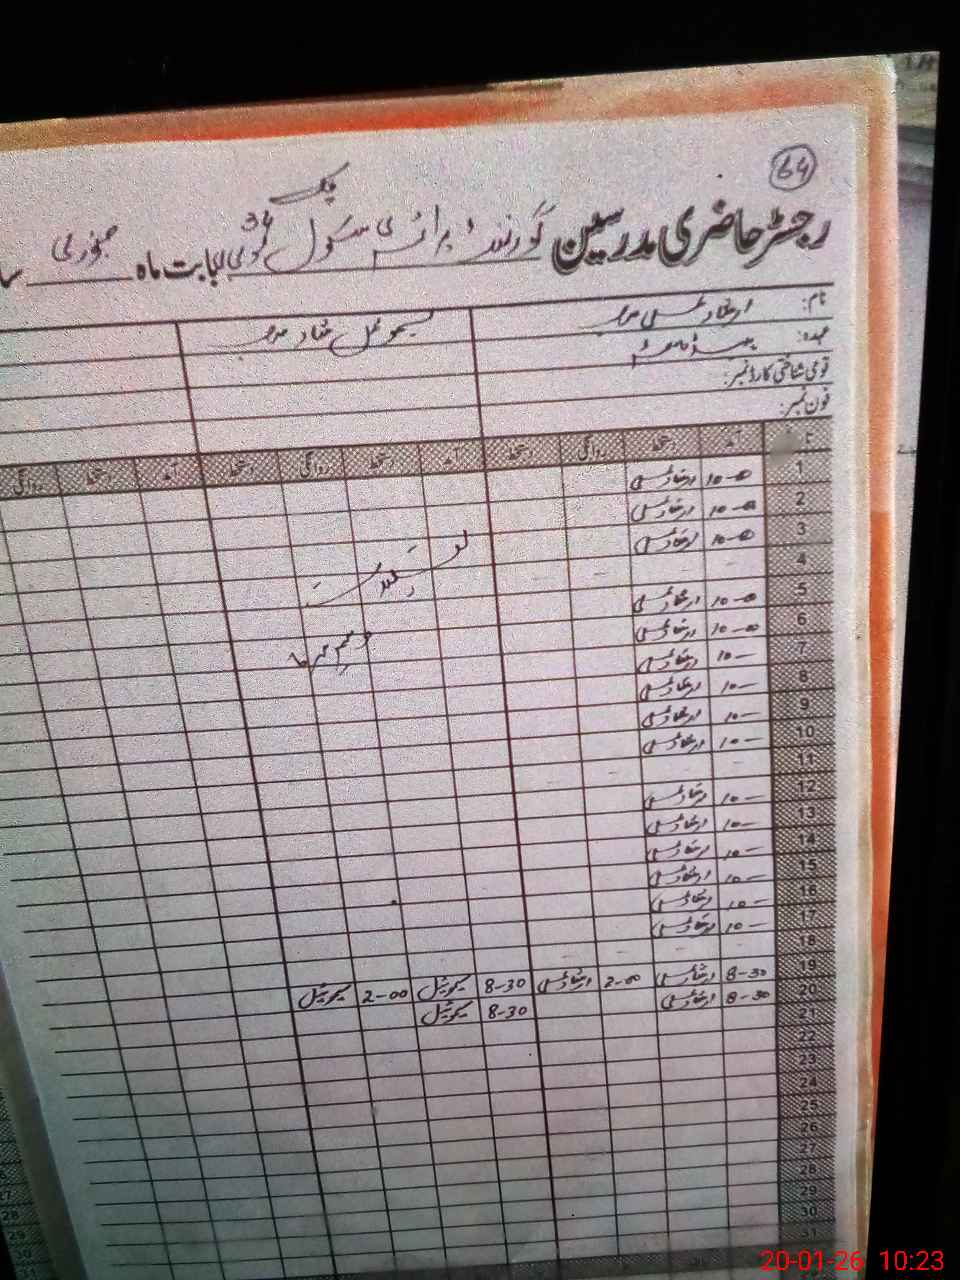 64
چک
رجسٹر حاضری مدرسین گورنمنٹ پرائمری سکول 34 بابت ماہ جنوری
نام: ارشاد مسیح صاحب سیموئیل شاد صاحب
عہدہ: ہیڈ ماسٹر
قومی شناختی کارڈ نمبر:
فون نمبر:
آمد دستخط روانگی دستخط آمد دستخط روانگی دستخط آمد دستخط روانگی
1 10-00 ارشاد مسیح
2 10-00 ارشاد مسیح
3 10-00 ارشاد مسیح
4 - -
5 10-00 ارشاد مسیح
6 10-00 ارشاد مسیح
7 10- ارشاد مسیح
8 10- ارشاد مسیح
9 10- ارشاد مسیح
10 10- ارشاد مسیح
11 - -
12 10- ارشاد مسیح
13 10- ارشاد مسیح
14 10- ارشاد مسیح
15 10- ارشاد مسیح
16 10- ارشاد مسیح
17 10- ارشاد مسیح
18 - -
19 8-30 ارشاد مسیح 2-00 ارشاد مسیح 8-30 سیموئیل 2-00 سیموئیل
20 8-30 ارشاد مسیح 8-30 سیموئیل
21
22
23
24
25
26
27
28
29
30
31
27
28
29
30
20-01-26 10:23